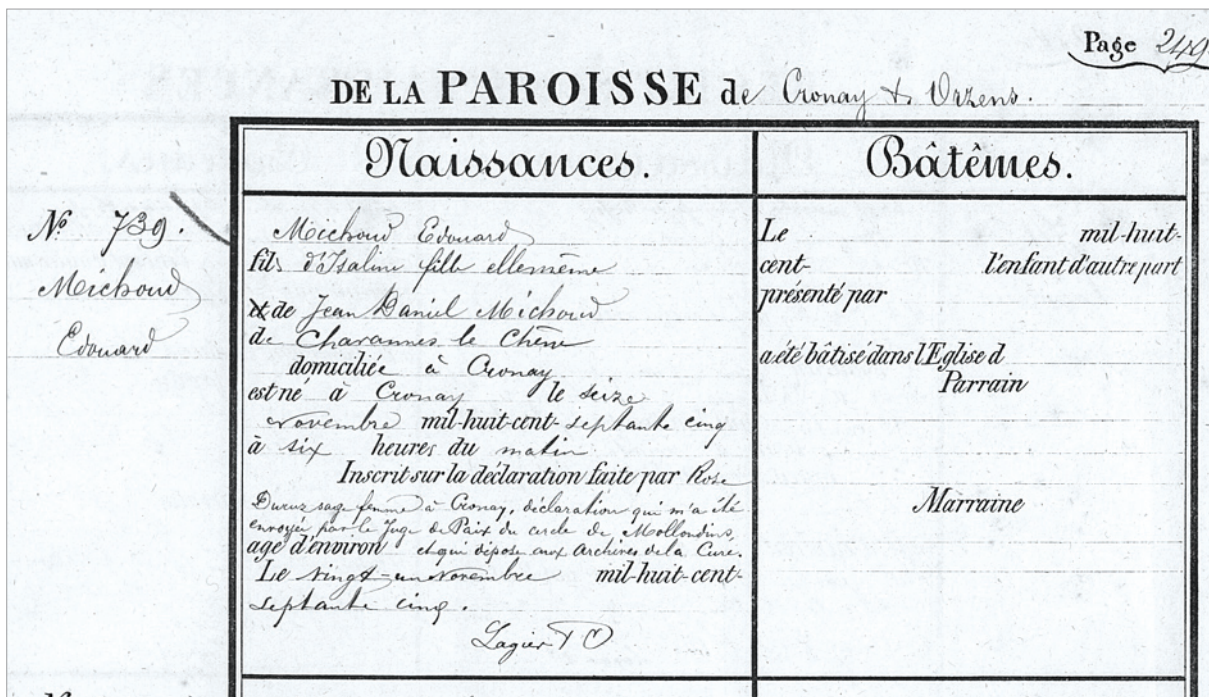 Page 249
DE LA PAROISSE de Cronay & Orzens.
Naissances.
Bâtêmes.
N° 739.
Michoud
Edouard
Michoud Edouard
fils d'Isaline fille ellemême
et de Jean Daniel Michoud
de Chavannes le Chêne
domiciliée à Cronay
est né à Cronay le seize
novembre mil-huit-cent-septante cinq
à six heures du matin
Inscrit sur la déclaration faite par Rose
Duruz sage femme à Cronay, déclaration qui m'a été
envoyée par le Juge de Paix du cercle de Mollondins,
agé d'environ et qui dépose aux Archives de la Cure.
Le vingt-un novembre mil-huit-cent-
septante cinq.
Lagier
Le mil-huit-
cent- l'enfant d'autre part
présenté par
a été bâtisé dans l'Eglise d
Parrain
Marraine